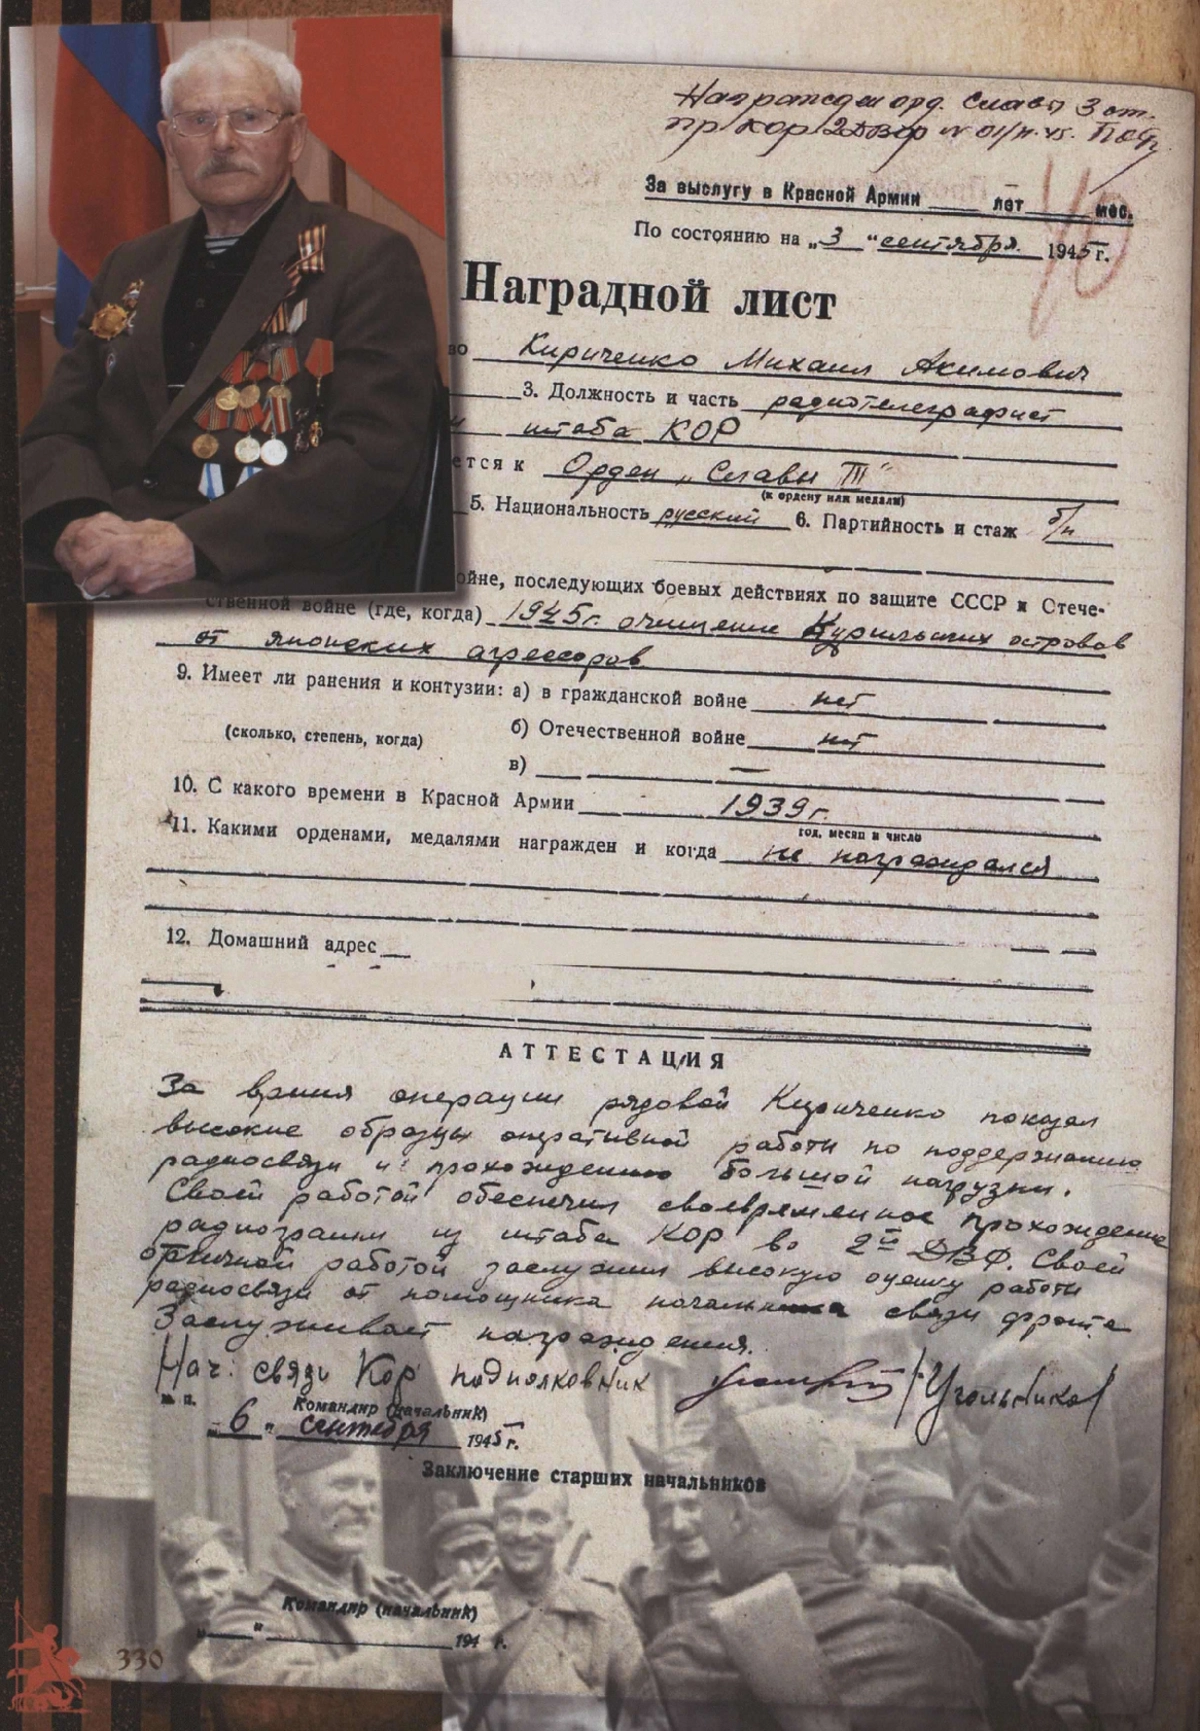 Награжден орд. Славы 3 ст.
пр/КОР 2ДВФ N 01/н-45.
За выслугу в Красной Армии ____ лет ____ мес.
По состоянию на „3“ сентября 1945 г.
Наградной лист
во Кириченко Михаил Акимович
3. Должность и часть радиотелеграфист
штаба КОР
ется к Орден „Славы III“
(к ордену или медали)
5. Национальность русский 6. Партийность и стаж б/п
ойне, последующих боевых действиях по защите СССР и Отече-
ственной войне (где, когда) 1945 г. очищение Курильских островов
от японских агрессоров
9. Имеет ли ранения и контузии: а) в гражданской войне нет
(сколько, степень, когда) б) Отечественной войне нет
в) —
10. С какого времени в Красной Армии 1939 г.
год, месяц и число
11. Какими орденами, медалями награжден и когда не награждался
12. Домашний адрес
АТТЕСТАЦИЯ
За время операции рядовой Кириченко показал
высокие образцы оперативной работы по поддержанию
радиосвязи и прохождению большой нагрузки.
Своей работой обеспечил своевременное прохождение
радиограмм из штаба КОР во 2й ДВФ. Своей
отличной работой заслужил высокую оценку работы
радиосвязи от помощника начальника связи фронта
Заслуживает награждения.
Нач: связи Кор подполковник /Угольников/
м. п.
Командир (начальник)
„6“ сентября 1945 г.
Заключение старших начальников
Командир (начальник)
„____“ ____ 194 г.
330